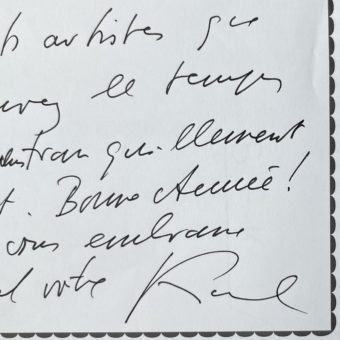 artistes que
le temps
tranquillement
. Bonne Année!
vous embrasse
votre Karl